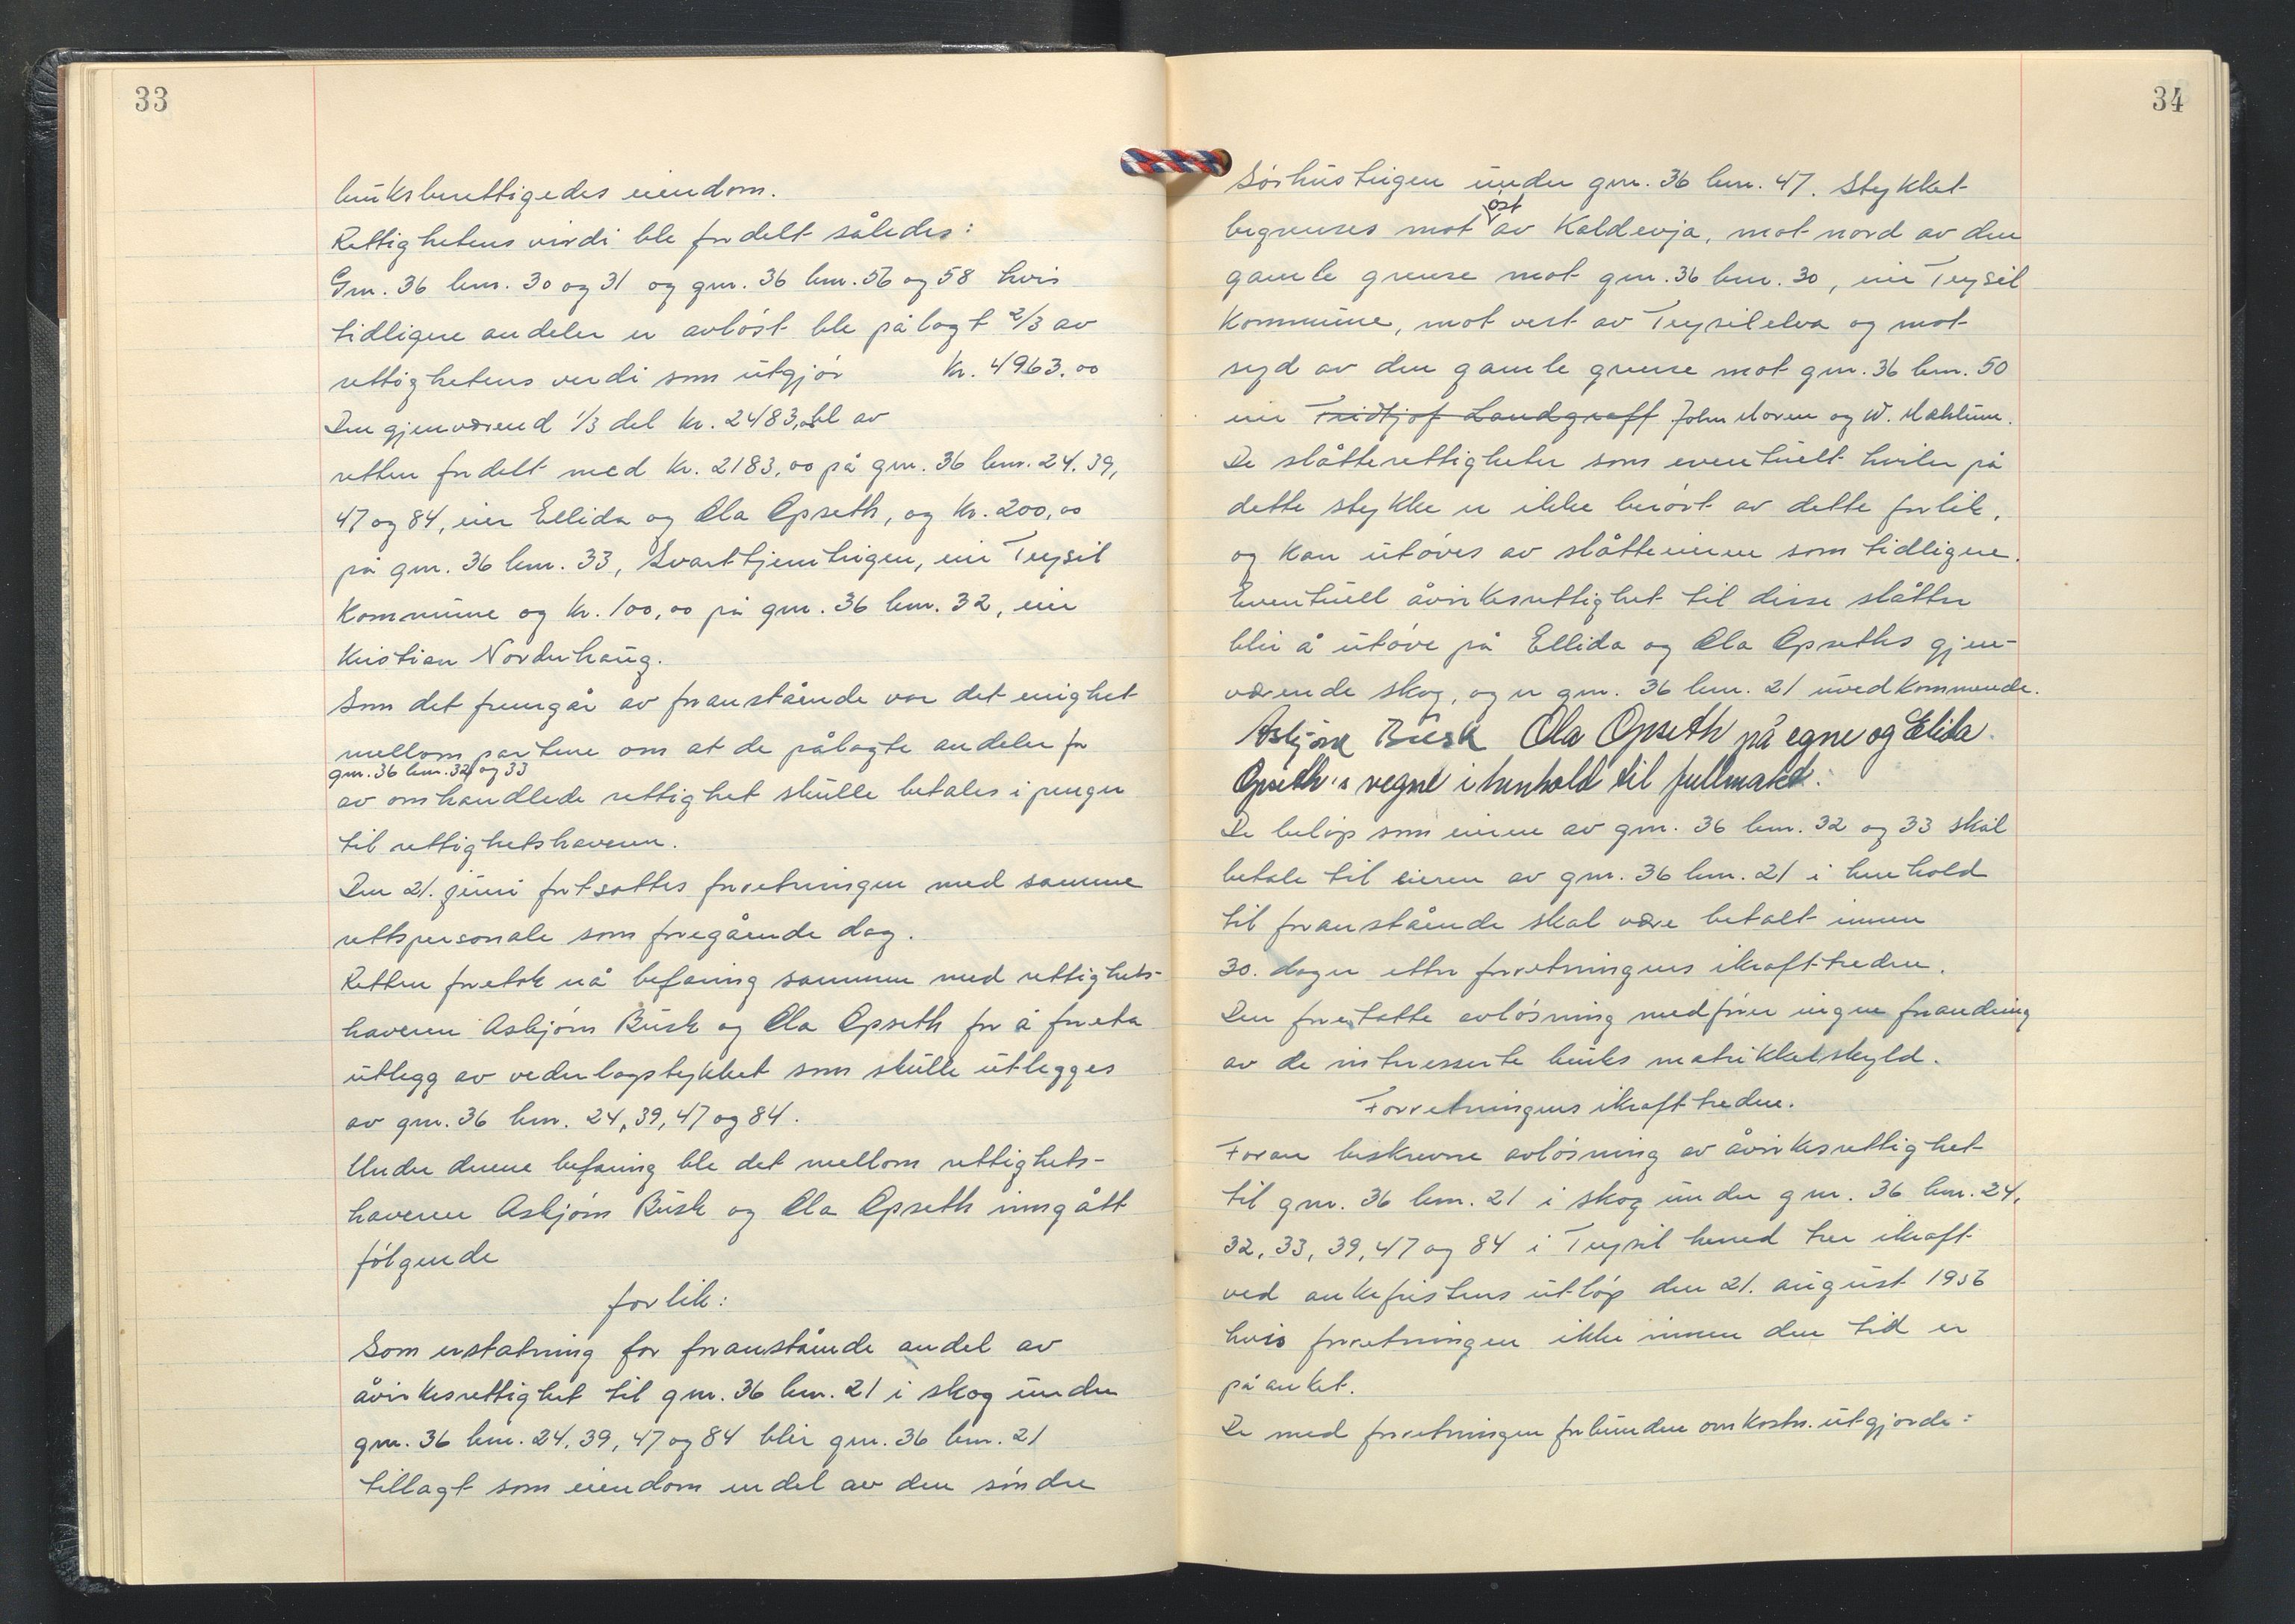 33
bruksberettigedes eiendom.
Rettighetens verdi ble fordelt således:
Gnr. 36 bnr. 30 og 31 og gnr. 36 bnr. 56 og 58 hvis
tidligere andeler er avløst ble pålagt 2/3 av
rettighetens verdi som utgjør kr. 4963.00
Den gjenværend 1/3 del kr. 2483,00 bl av
retten fordelt med kr. 2183,00 på gnr. 36 bnr. 24. 39,
47 og 84, eier Ellida og Ola Opseth, og kr. 200,00
på gnr. 36 bnr. 33, Svarttjernteigen, eier Trysil
Kommune og kr. 100,00 på gnr. 36 bnr. 32, eier
Kristian Norderhaug.
Som det fremgår av foranstående var det enighet
mellom partene om at de pålagte andeler for
gnr. 36 bnr. 32 og 33
av omhandlede rettighet skulle betales i penger
til rettighetshaveren.
Den 21. juni fortsattes forretningen med samme
rettspersonale som foregående dag.
Retten foretok nå befaring sammen med rettighets-
haveren Asbjørn Busk og Ola Opseth for å foreta
utlegg av vederlagstykket som skulle utlegges
av gnr. 36 bnr. 24, 39, 47 og 84.
Under denne befaring ble det mellom rettighets-
haveren Asbjørn Busk og Ola Opseth inngått
følgende
forlik:
Som erstatning for foranstående andel av
åvirkesrettighet til gnr. 36 bnr. 21 i skog under
gnr. 36 bnr. 24, 39, 47 og 84 blir gnr. 36 bnr. 21
tillagt som eiendom en del av den søndre
34
Sørhusteigen under gnr. 36 bnr. 47. Stykket
øst
begrenses mot av Kaldevja, mot nord av den
gamle grense mot gnr. 36 bnr. 30, eier Trysil
Kommune, mot vest av Trysilelva og mot
syd av den gamle grense mot gnr. 36 bnr. 50
eier Fridtjof Landgraff John Moren og W. Mæhlum.
De slåtterettigheter som eventuelt hviler på
dette stykke er ikke berørt av dette forlik,
og kan utøves av slåtteeieren som tidligere.
Eventuell åvirkesrettighet til disse slåtter
blir å utøve på Ellida og Ola Opseths gjen-
værende skog, og er gnr. 36 bnr. 21 uvedkommende.
Asbjørn Busk Ola Opseth på egne og Elida
Opseth's vegne i henhold til fullmakt.
De beløp som eieren av gnr. 36 bnr. 32 og 33 skal
betale til eieren av gnr. 36 bnr. 21 i henhold
til foranstående skal være betalt innen
30. dager etter forretningens ikrafttreden.
Den foretatte avløsning medfører ingen forandring
av de interesserte bruks matrikkelskyld.
Forretningens ikrafttreden.
Foran beskrevne avløsning av åvirkesrettighet
til gnr. 36 bnr. 21 i skog under gnr. 36 bnr. 24,
32, 33, 39, 47 og 84 i Trysil herred trer ikraft
ved ankefristens utløp den 21. august 1956
hvis forretningen ikke innen den tid er
påanket.
De med forretningen forbundne omkostn. utgjorde: